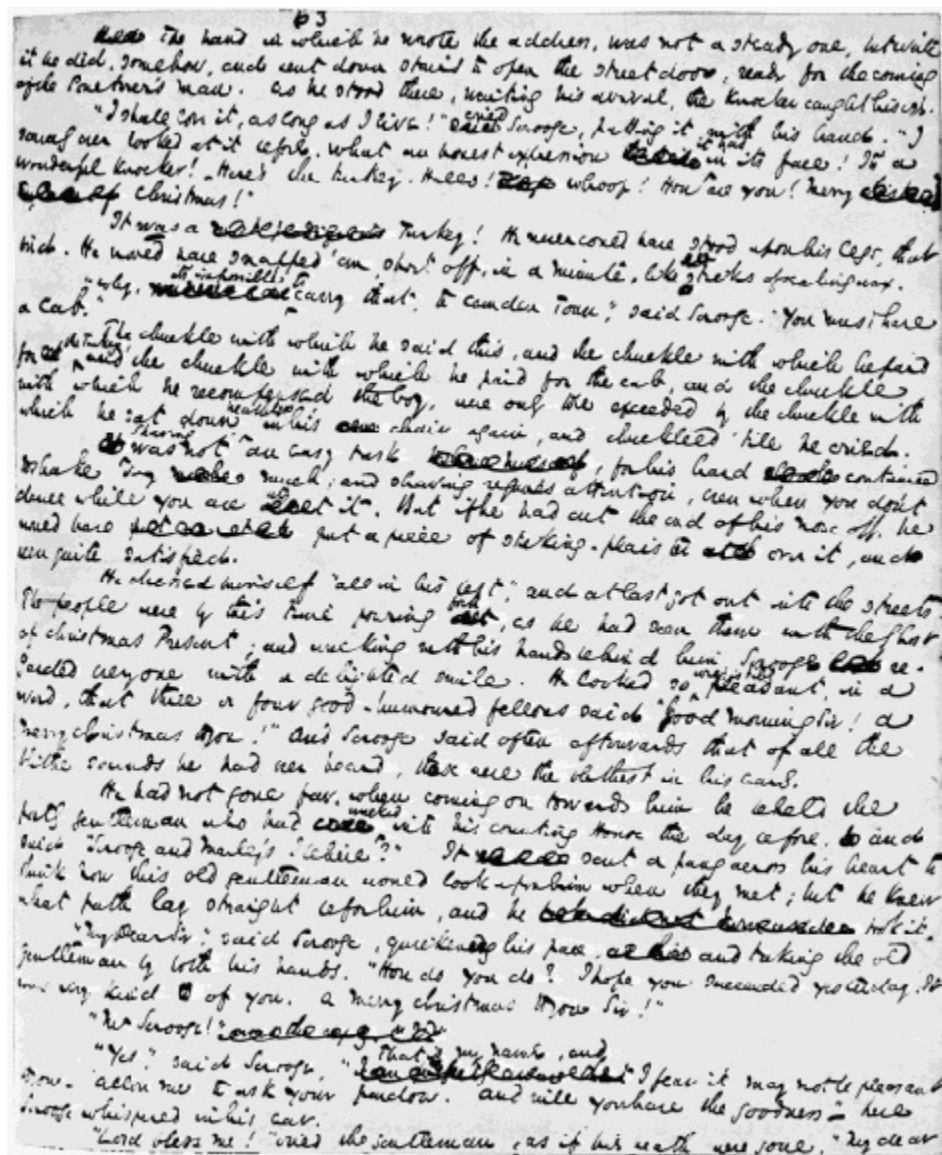 63
The hand in which he wrote the address, was not a steady one, but write
it he did, somehow, and went down stairs to open the street door, ready for the coming
of the Poulterer's man. As he stood there, waiting his arrival, the knocker caught his eye.
"I shall love it, as long as I live!" cried Scrooge, patting it with his hand. "I
scarcely ever looked at it before. What an honest expression it has in its face! It's a
wonderful knocker! - Here's the turkey. Hallo! Whoop! How are you! Merry
Christmas!"
It was a Turkey! He never could have stood upon his legs, that
bird. He would have snapped 'em short off, in a minute, like sticks of sealing wax.
"Why, it's impossible to carry that, to Camden Town," said Scrooge. "You must have
a cab."
The chuckle with which he said this, and the chuckle with which he paid
for the turkey and the chuckle with which he paid for the cab, and the chuckle
with which he recompensed the boy, were only to be exceeded by the chuckle with
which he sat down breathless in his chair again, and chuckled till he cried.
Shaving was not an easy task, for his hand continued
to shake very much; and shaving requires attention, even when you don't
dance while you are at it. But if he had cut the end of his nose off, he
would have put a piece of sticking-plaister over it, and
been quite satisfied.
He dressed himself "all in his best", and at last got out into the streets
The people were by this time pouring forth, as he had seen them with the ghost
of Christmas Present; and walking with his hands behind him, Scrooge re-
garded every one with a delighted smile. He looked so irresistibly pleasant, in a
word, that three or four good-humoured fellows said "Good morning Sir! A
merry Christmas to you!" And Scrooge said often afterwards that of all the
blithe sounds he had ever heard, those were the blithest in his ears.
He had not gone far, when coming on towards him he beheld the
portly gentleman who had walked into his counting House the day before, and
said "Scrooge and Marley's I believe?" It sent a pang across his heart to
think how this old gentleman would look upon him when they met; but he knew
what path lay straight before him, and he took it.
"My Dear Sir," said Scrooge, quickening his pace, and taking the old
gentleman by both his hands. "How do you do? I hope you succeeded yesterday. It
was very kind of you. A merry Christmas to you Sir!"
"Mr Scrooge!"
"Yes," said Scrooge. "That is my name, and I fear it may not be pleasant
to you. Allow me to ask your pardon. And will you have the goodness" - here
Scrooge whispered in his ear.
"Lord bless me!" cried the gentleman, as if his breath were gone. "My dear